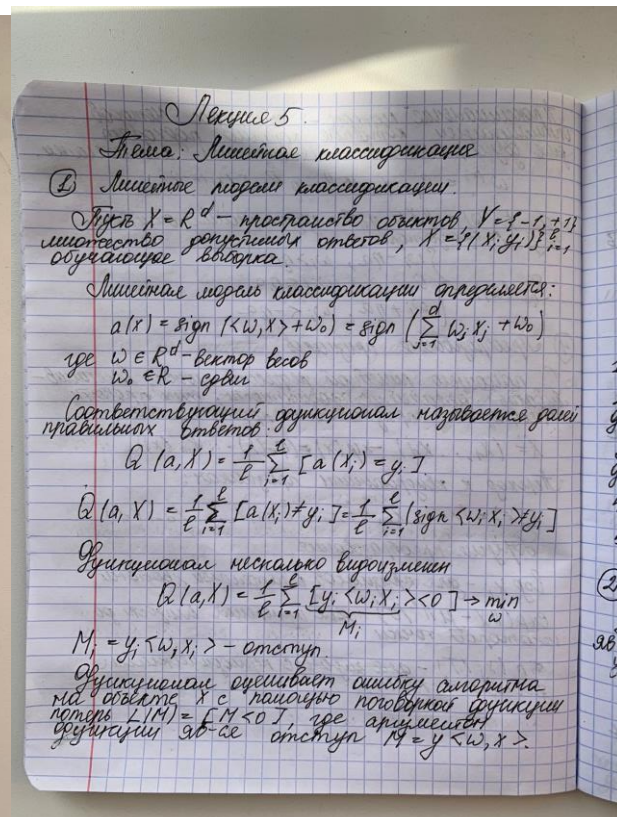 Лекция 5.
Тема: Линейная классификация
① Линейные модели классификации.
Пусть X = R^d – пространство объектов, Y = {-1, +1}
множество допустимых ответов, X = {(x_i, y_i)}^ℓ_{i=1}
обучающее выборка.
Линейная модель классификации определяется:
a(x) = sign (<w, x> + w_0) = sign (∑_{j=1}^{d} w_j x_j + w_0)
где w ∈ R^d – вектор весов
w_0 ∈ R – сдвиг
Соответствующий функционал называется долей
правильных ответов.
Q (a, X) = 1/ℓ ∑_{i=1}^{ℓ} [a(x_i) = y_i]
Q (a, X) = 1/ℓ ∑_{i=1}^{ℓ} [a(x_i) ≠ y_i] = 1/ℓ ∑_{i=1}^{ℓ} [sign <w_i x_i> ≠ y_i]
Функционал несколько видоизменен
Q (a, X) = 1/ℓ ∑_{i=1}^{ℓ} [y_i <w_i x_i> < 0] → min_w
M_i
M_i = y_i <w, x_i> – отступ.
Функционал оценивает ошибку алгоритма
на объекте x с помощью пороговой функции
потерь L(M) = [M < 0], где аргументом
функции яв-ся отступ M = y <w, x>.
②
яв